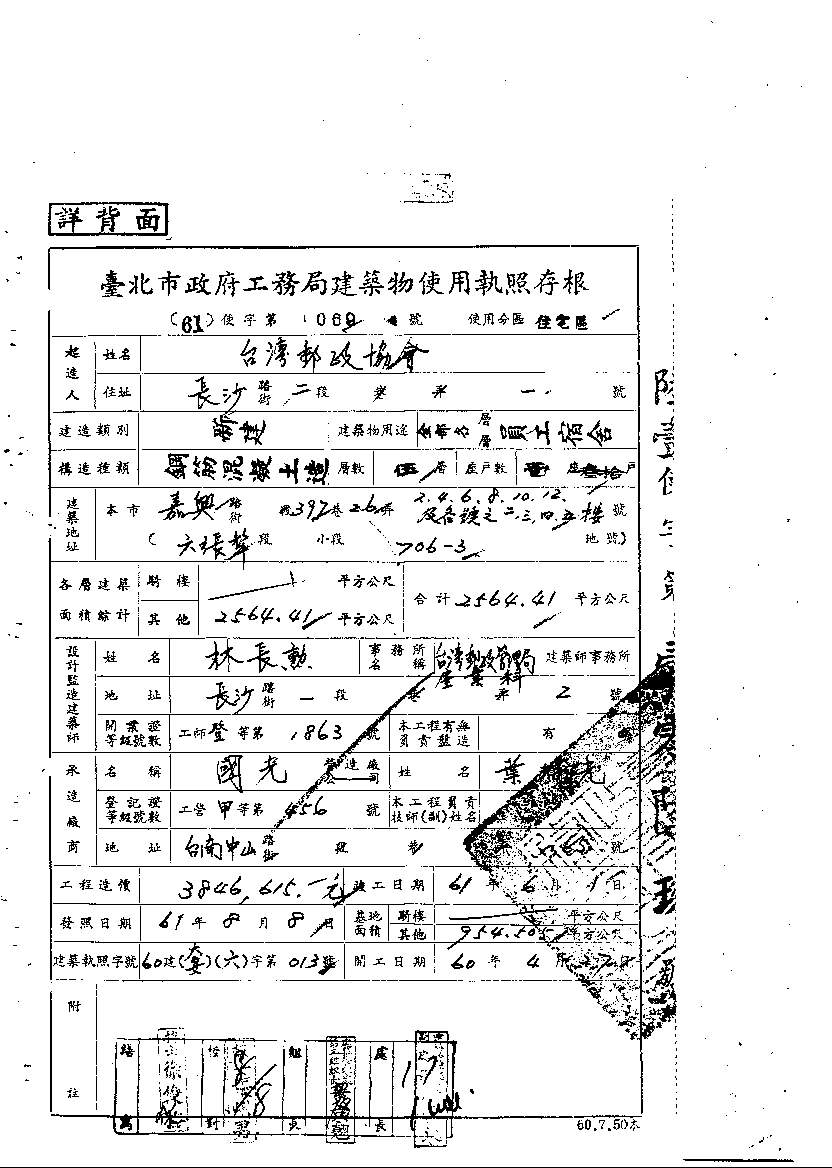 詳背面
臺北市政府工務局建築物使用執照存根
(61)使字第 1069 號 使用分區 住宅區
起造人 姓名 台灣郵政協會
住址 長沙 路街 二 段 巷 弄 一 號
建造類別 新建 建築物用途 全部各層層 員工宿舍
構造種類 鋼筋混凝土造 層數 層 座戶數 座 戶
建築地址 本市 嘉興 路街 段 397 巷 26 弄 2.4.6.8.10.12. 及各號之二、三、四、五樓 號
( 六張犂 段 小段 706-3 地號)
各層建築面積綜計 騎樓 平方公尺 合計 2564.41 平方公尺
其他 2564.41 平方公尺
設計監造建築師 姓名 林長勳 事務所名稱 台灣郵政管理局產業科 建築師事務所
地址 長沙 路街 一 段 巷 弄 2 號
開業證等級號數 工師 登 等第 1863 號 本工程有無負責監造 有
承造廠商 名稱 國光 營造廠公司 姓名 葉 光
登記證等級號數 工營 甲 等第 456 號 本工程負責技師(副)姓名
地址 台南中山 路街 段 巷 號
工程造價 3846,615.一元 竣工日期 61 年 6 月 1 日
發照日期 61 年 8 月 8 日 基地面積 騎樓 平方公尺
其他 954.505 平方公尺
建築執照字號 60建(套)(六)字第 013 號 開工日期 60 年 4 月 日
附註
繕寫 校對 組長 處長
60.7.50本